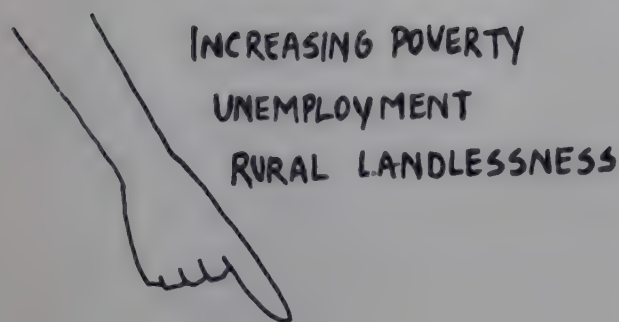 INCREASING POVERTY
UNEMPLOYMENT
RURAL LANDLESSNESS